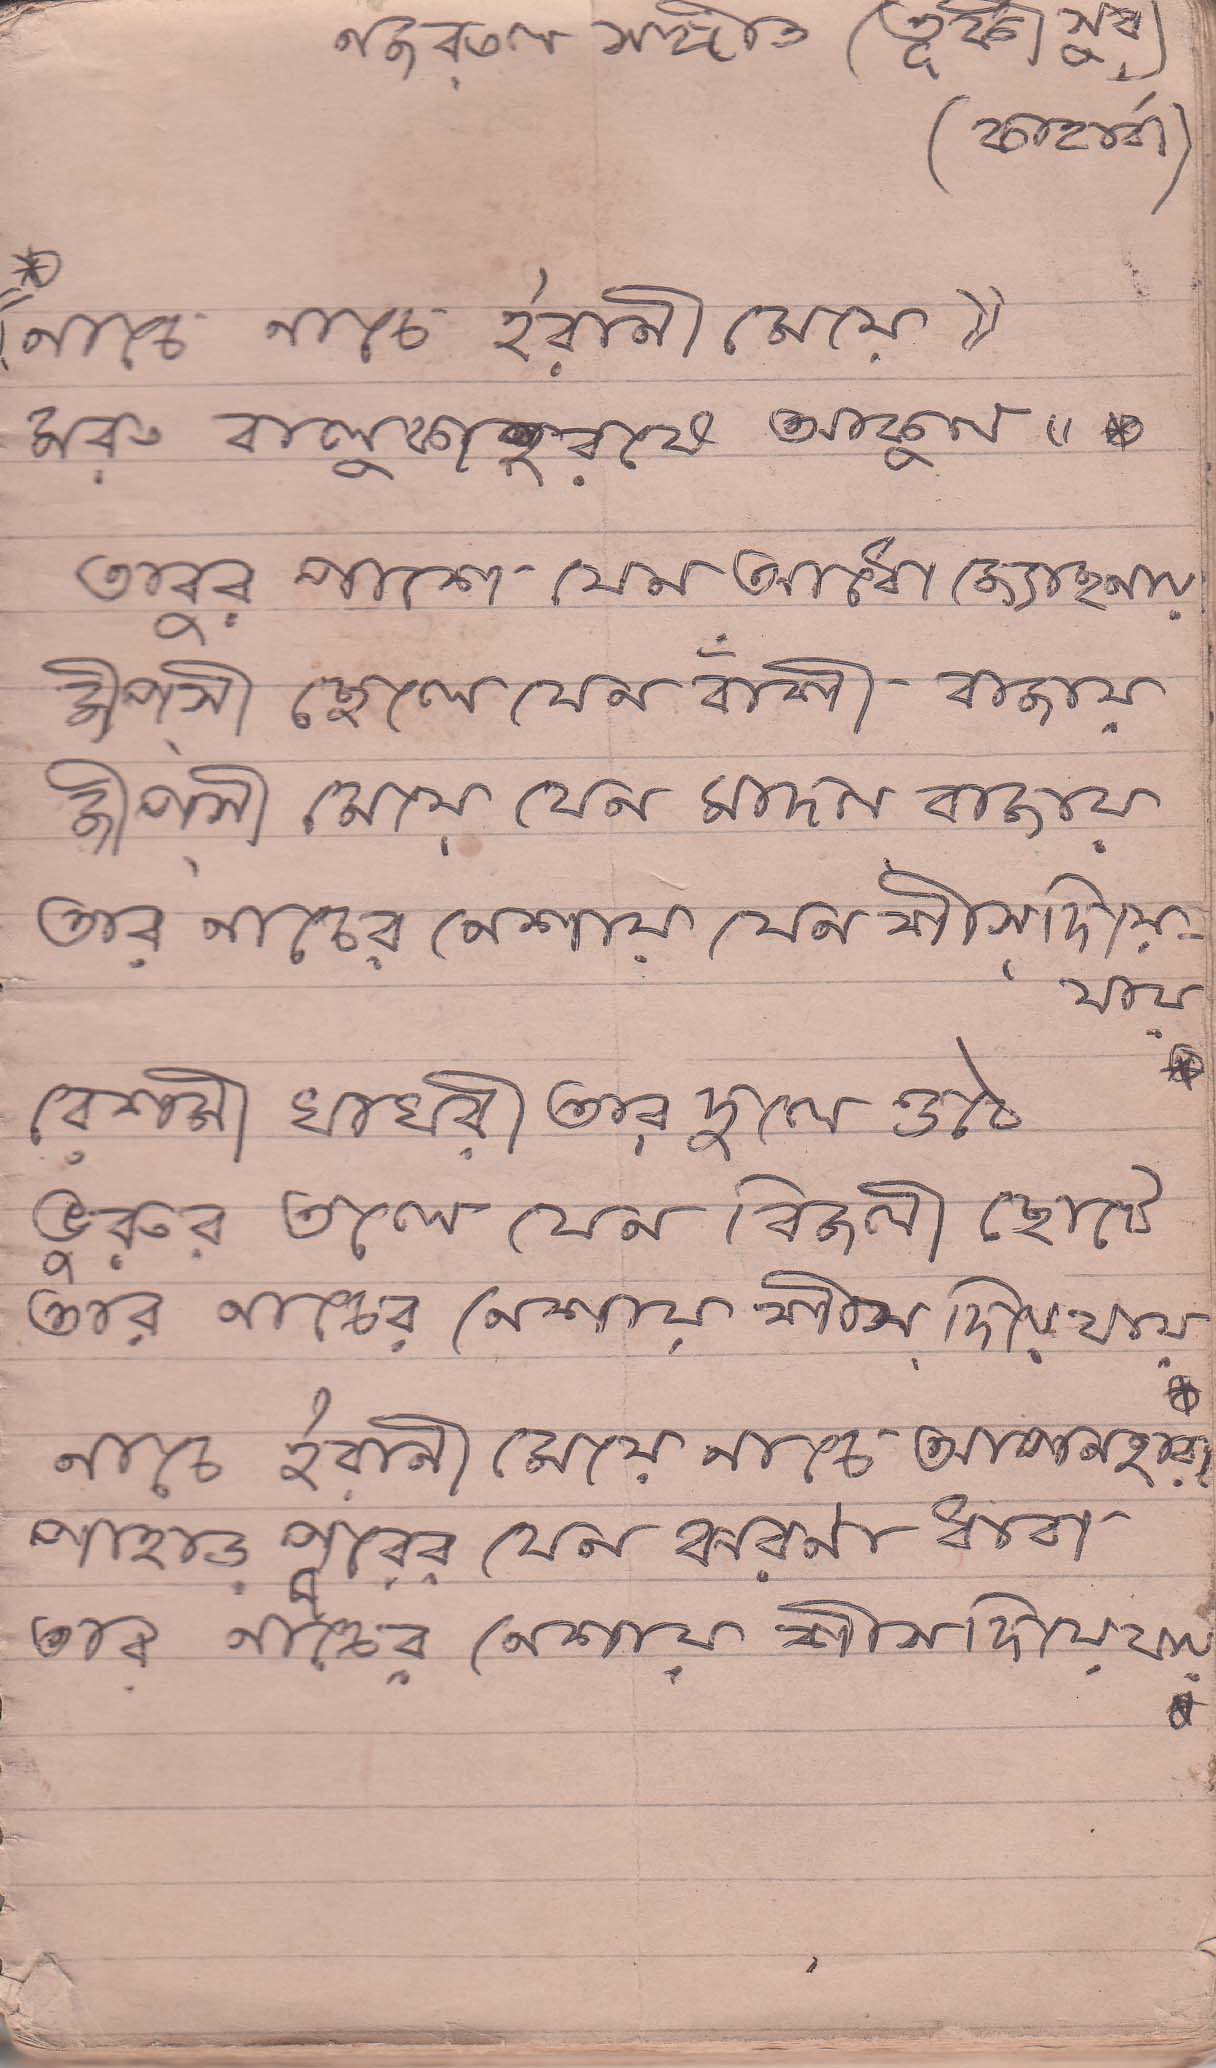 নজরুল সঙ্গীত (তুর্কী সুর)
(কাহার্বা)
নাচে নাচে ইরানী মেয়ে ॥
মরু বালুকা আকুল ॥
তাবুর পাশে যেন আধো জ্যোছনায়
জীপসী ছেলে যেন বাঁশী বাজায়
জীপসী মেয়ে যেন মাদল বাজায়
তার নাচের নেশায় যেন শীস্ দিয়ে
যায়
রেশমী ঘাঘরী তার দুলে ওঠে
ভুরুর তলে যেন বিজলী ছোটে
তার নাচের নেশায় শীস্ দিয়ে যায়
নাচে ইরানী মেয়ে নাচে আপনহারা
পাহাড় পুরের যেন ঝরনা ধারা
তার নাচের নেশায় শীস দিয়ে যায়